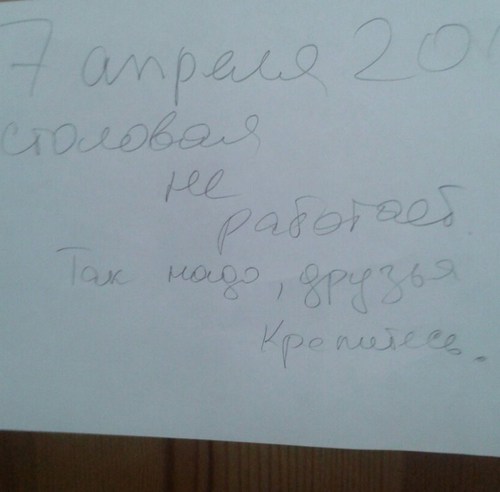 7 апреля 20
столовая
не
работает.
Так надо, друзья
Крепитесь.